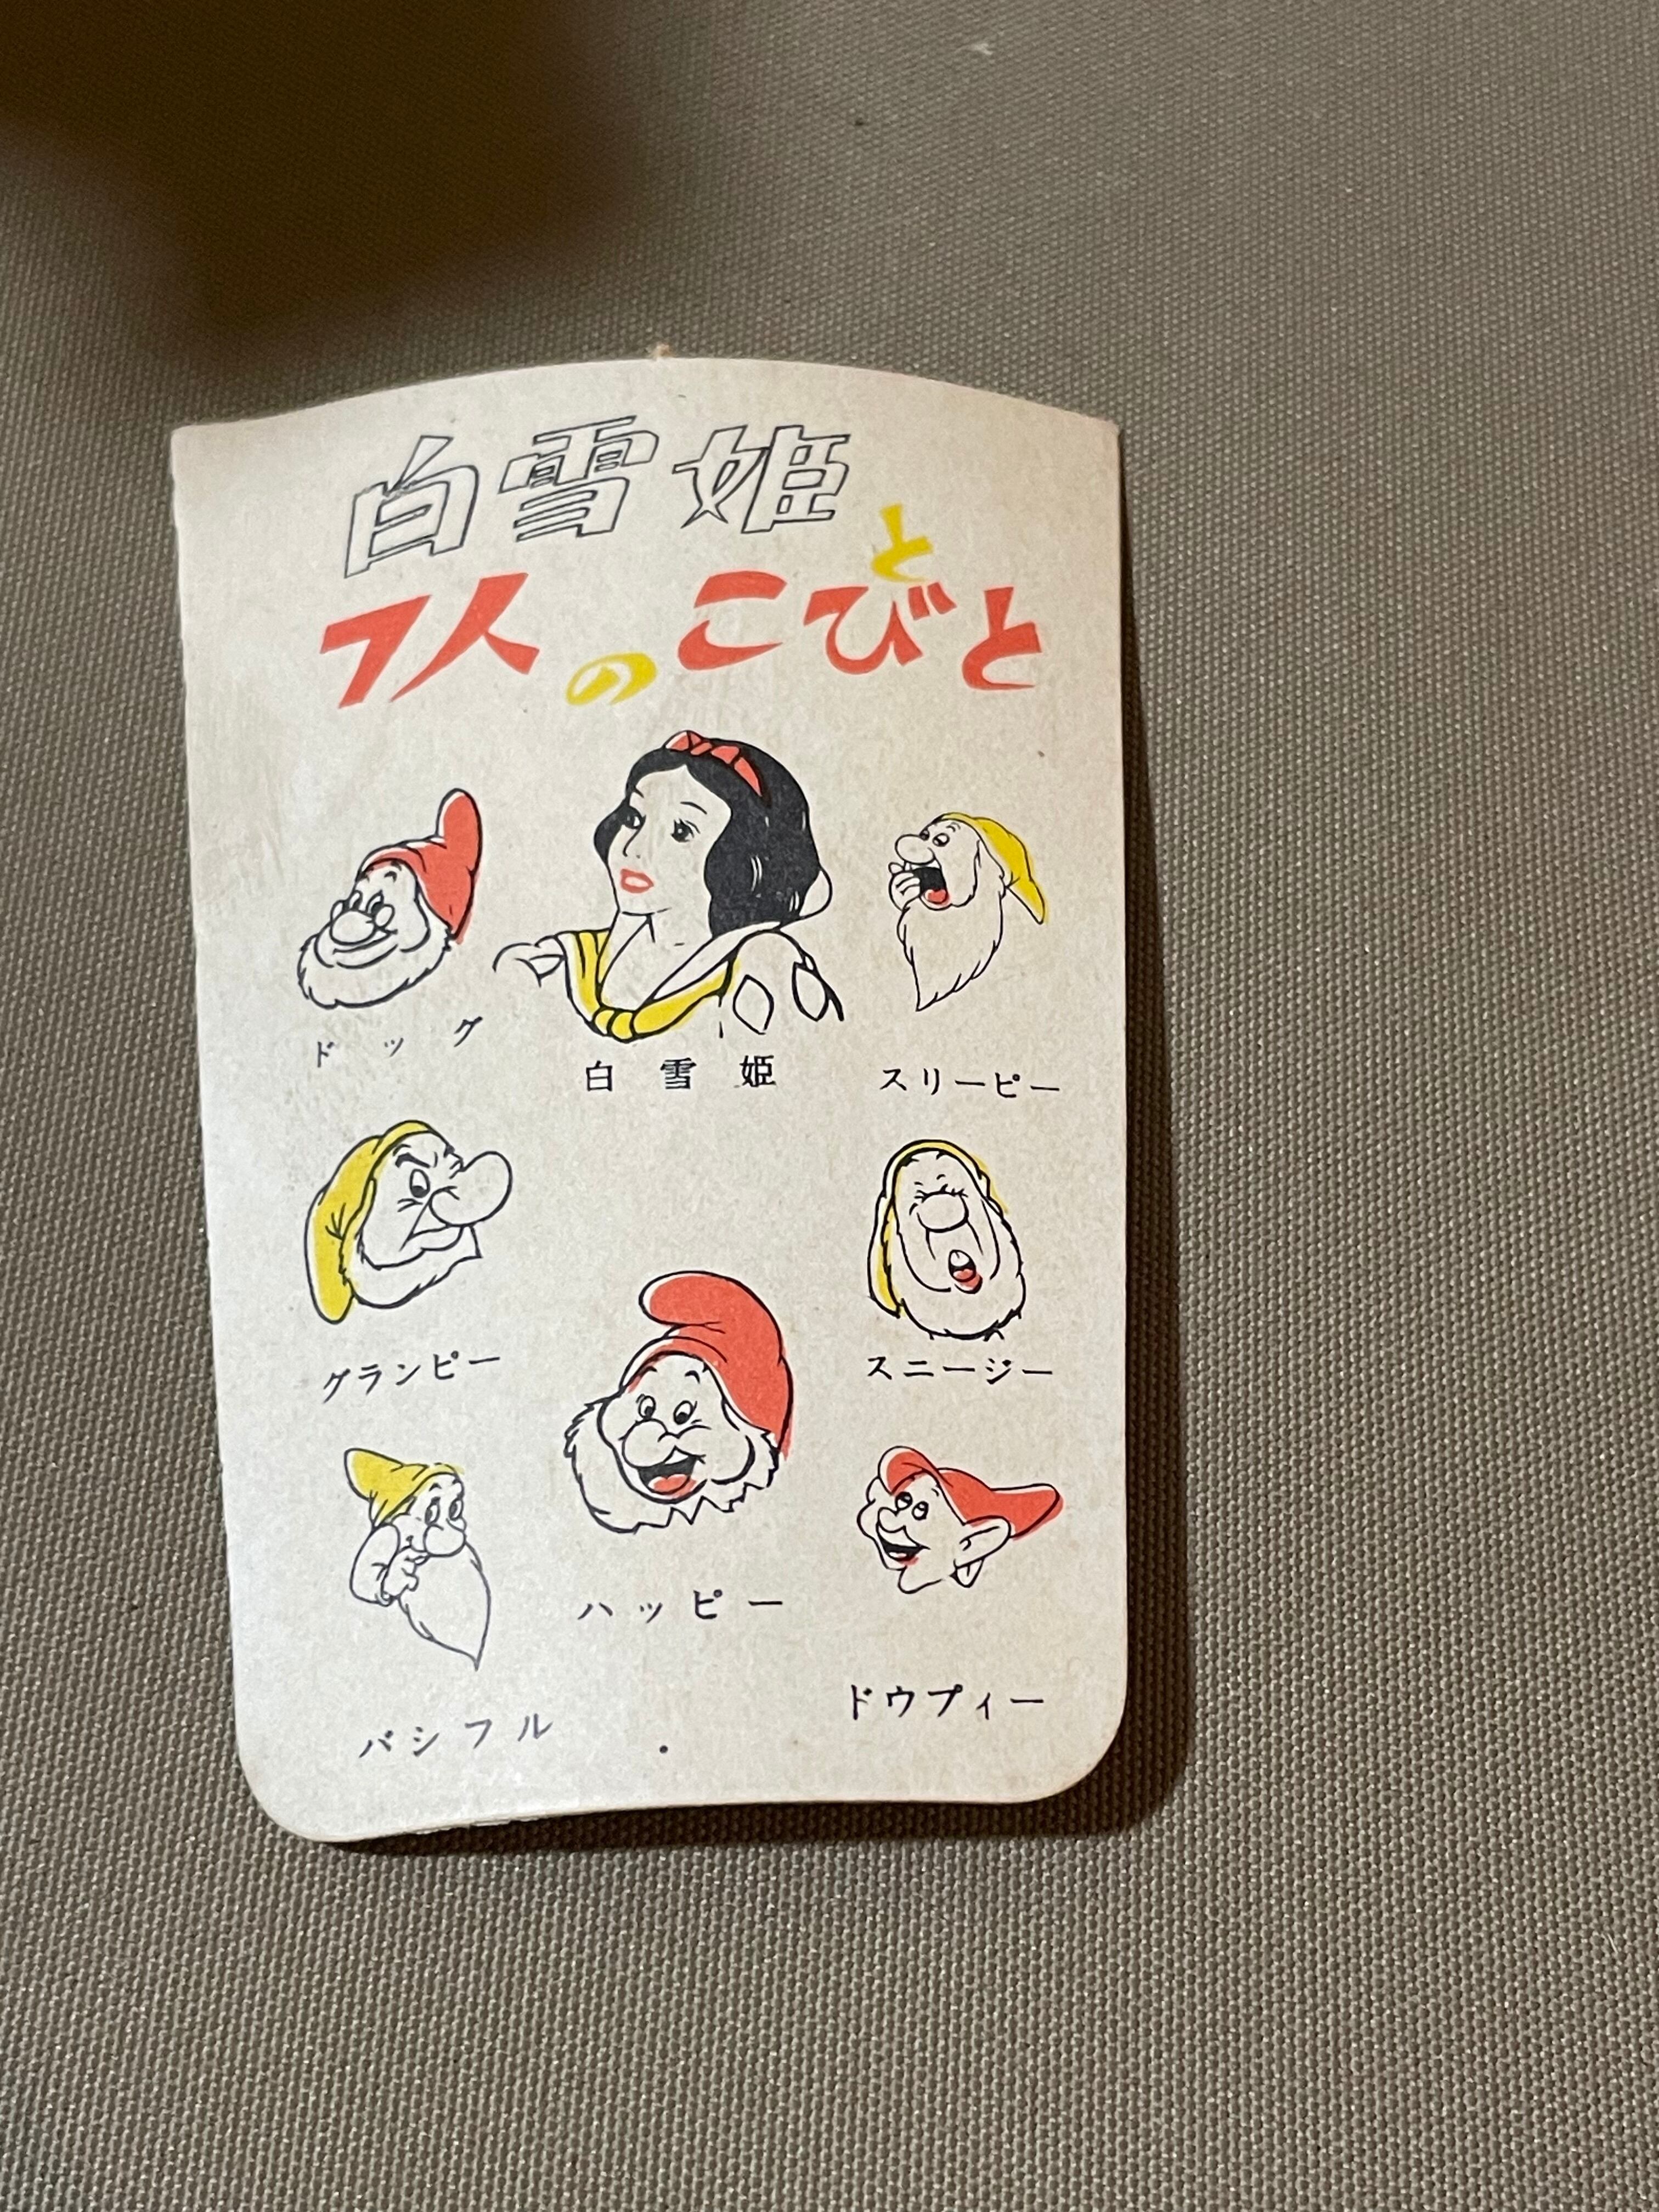 白雪姫と
7人のこびと
ドック
白雪姫
スリーピー
グランピー
スニージー
ハッピー
バシフル
ドウプィー